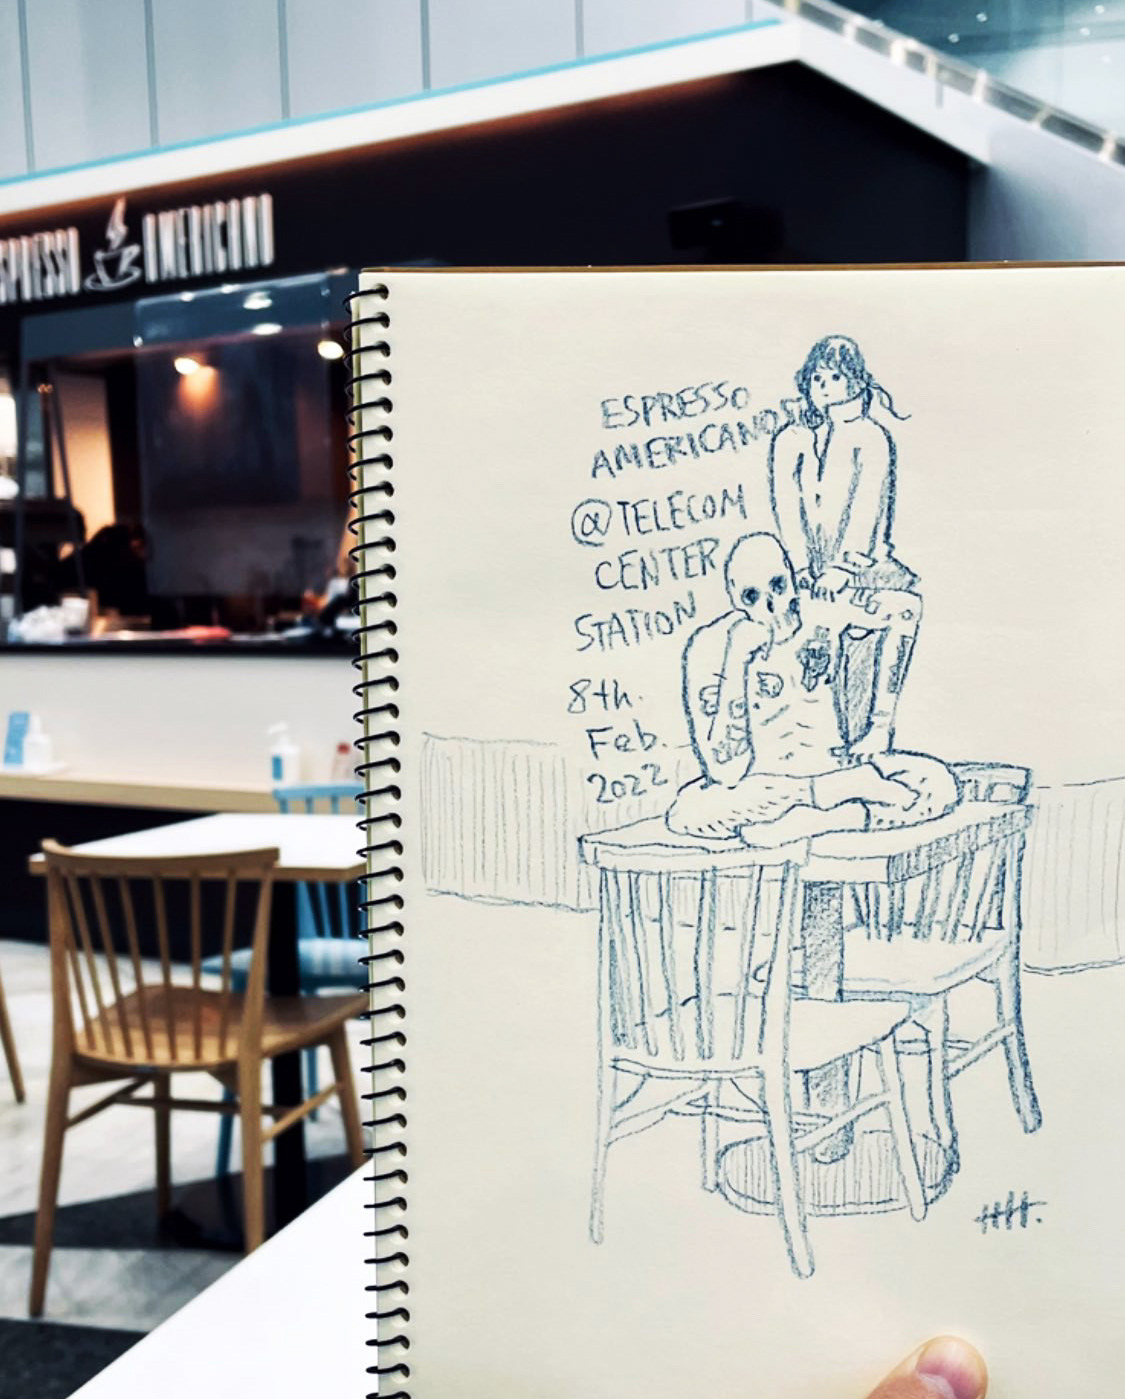 ESPRESSO AMERICANO
ESPRESSO
AMERICANO
@TELECOM
CENTER
STATION
8th.
Feb.
2022